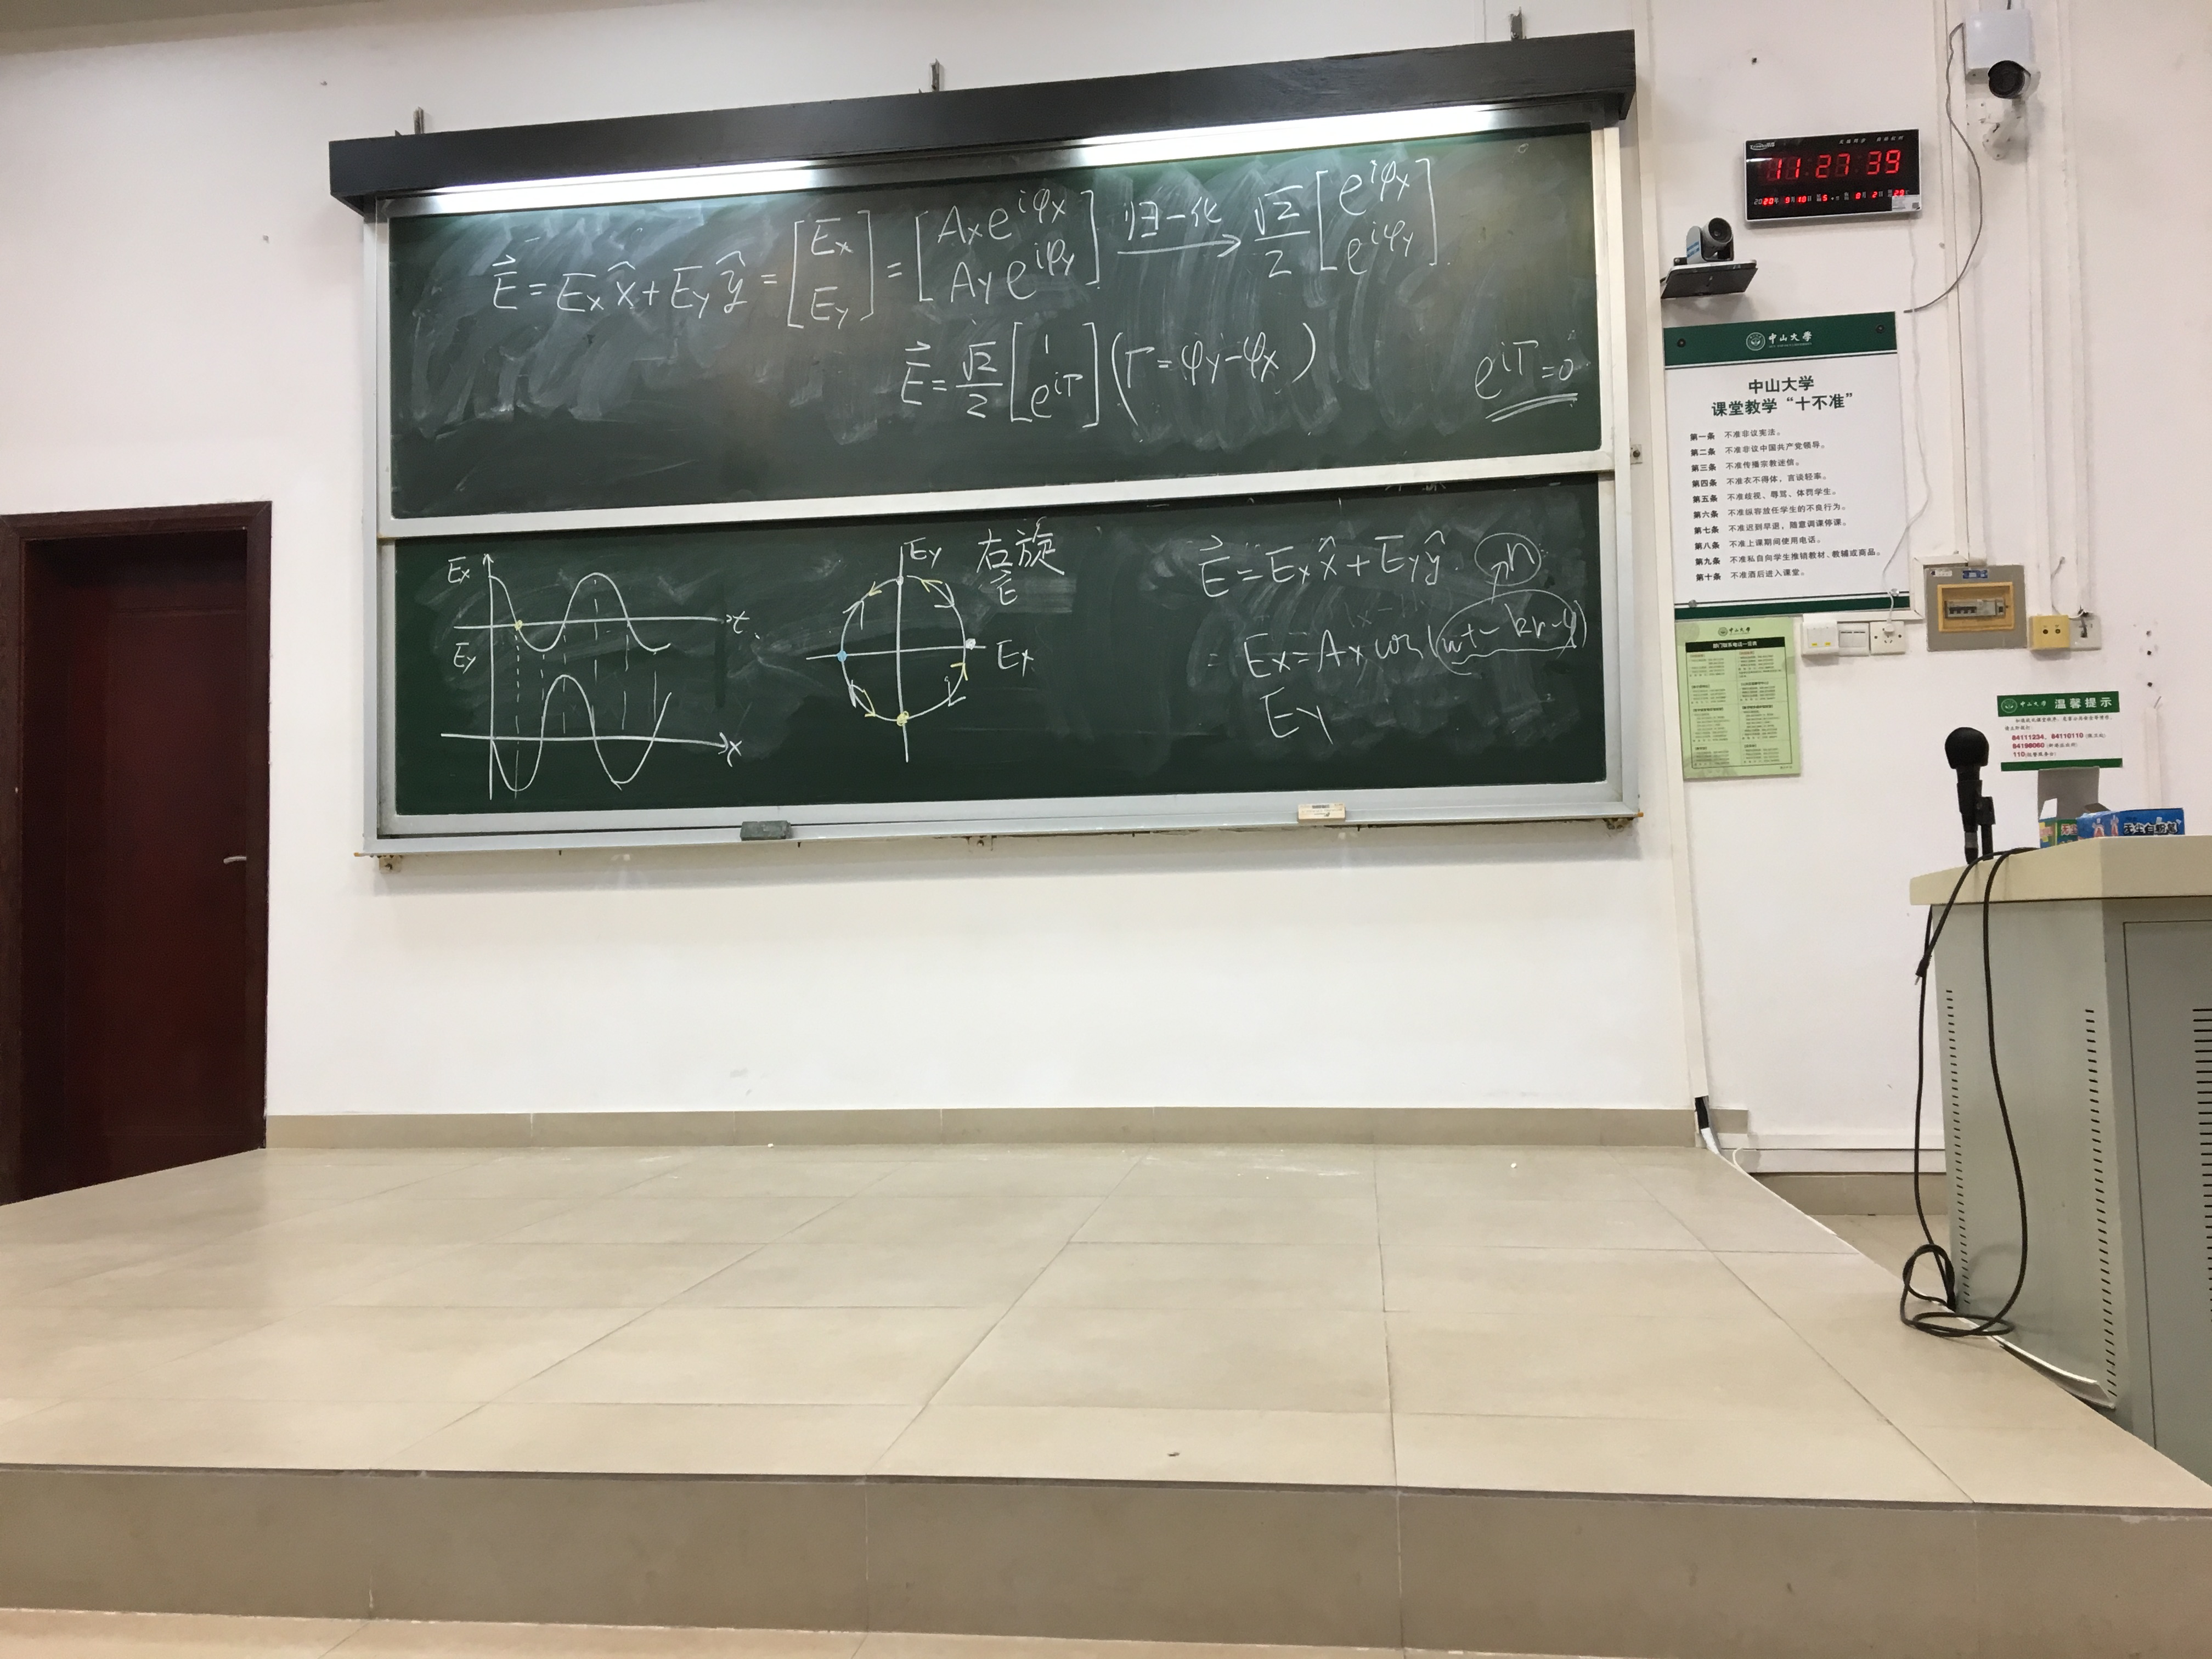 E⃗ = Ex x̂ + Ey ŷ = [Ex Ey] = [Ax e^{iφx} Ay e^{iφy}] 归一化 → √2/2 [e^{iφx} e^{iφy}]
E⃗ = √2/2 [1 e^{iΓ}] (Γ = φy - φx)
e^{iΓ} = 0
Ex
t
Ey
x
Ey
右旋
E⃗
Ex
E⃗ = Ex x̂ + Ey ŷ
n
= Ex = Ax cos(wt - kr - φ)
Ey
11:27:39
2020年 9月10日
中山大学
中山大学
课堂教学“十不准”
第一条 不准非议宪法。
第二条 不准非议中国共产党领导。
第三条 不准传播宗教迷信。
第四条 不准衣不得体，言谈轻率。
第五条 不准歧视、辱骂、体罚学生。
第六条 不准纵容放任学生的不良行为。
第七条 不准迟到早退，随意调课停课。
第八条 不准上课期间使用电话。
第九条 不准私自向学生推销教材、教辅或商品。
第十条 不准酒后进入课堂。
中山大学 温馨提示
84111234、84110110
84196060
110
无尘白粉笔